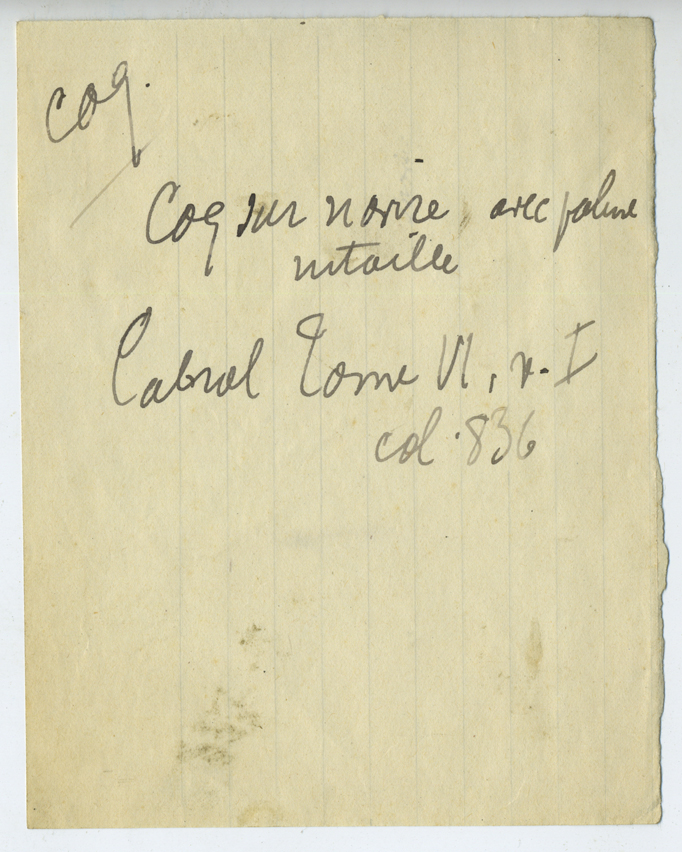 coq.
Coq sur navire, avec palme
intaille
Cabrol Tome VI, v. I
col. 836